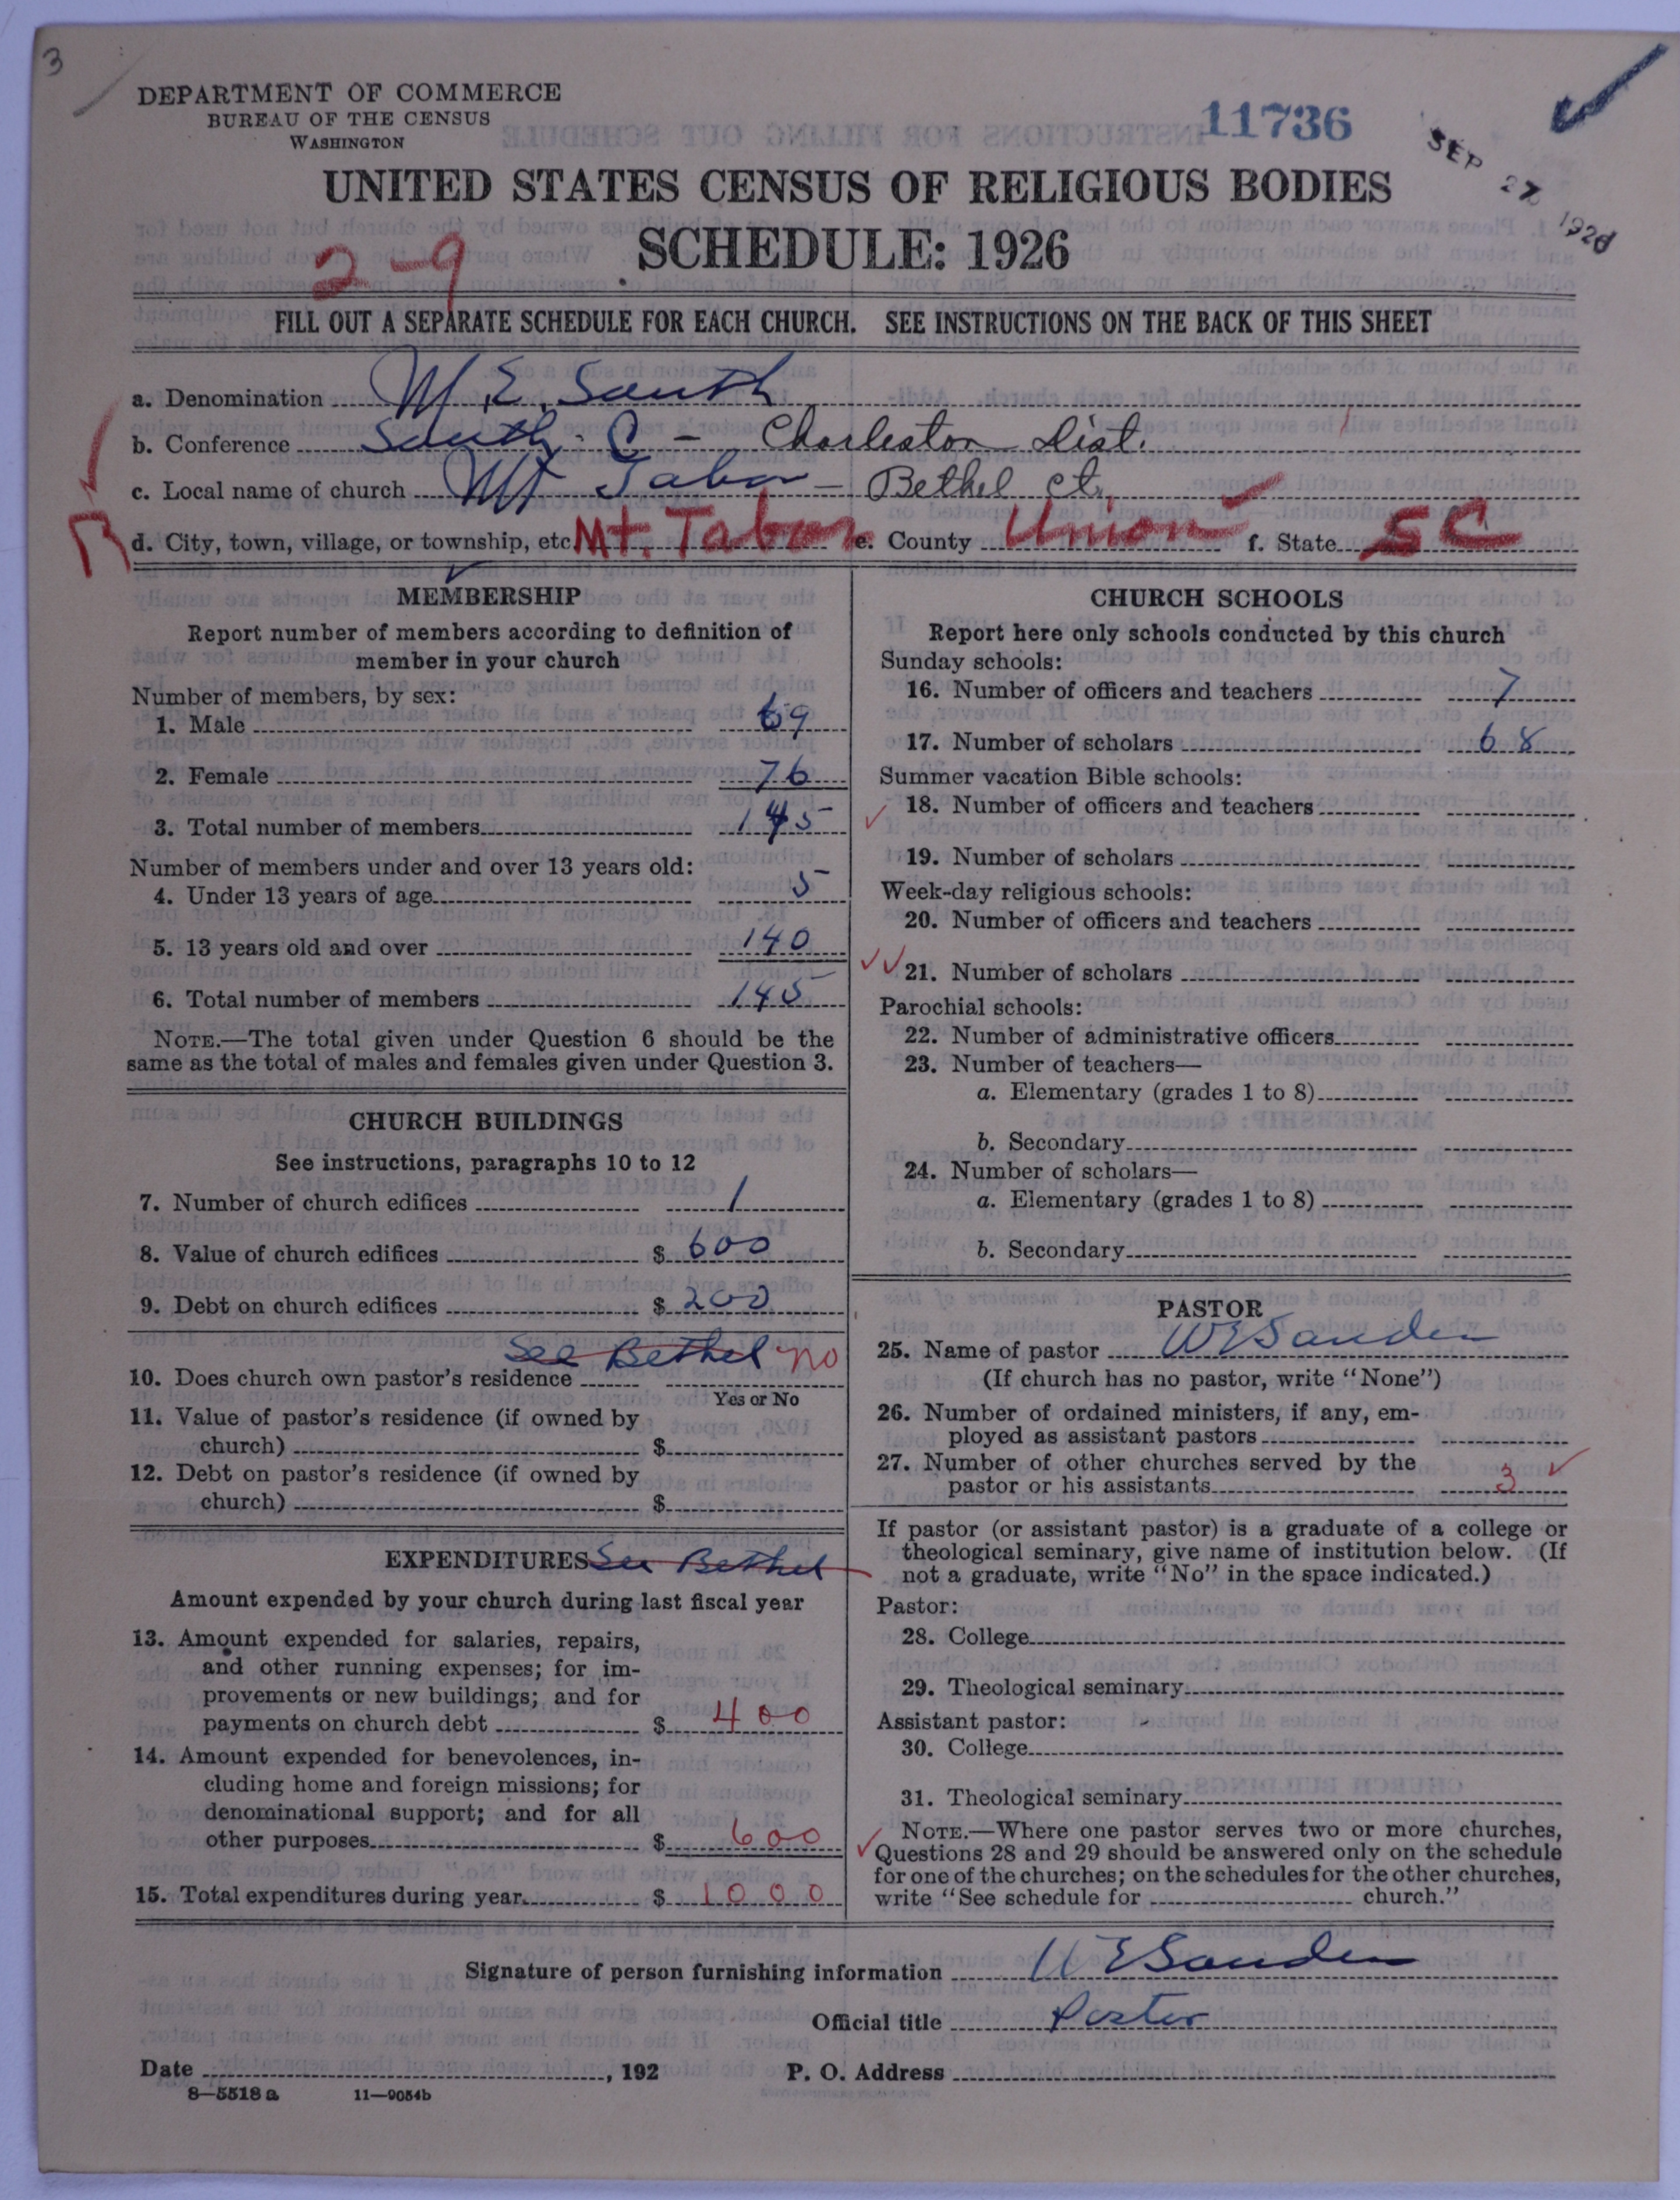 3
DEPARTMENT OF COMMERCE
BUREAU OF THE CENSUS
WASHINGTON
11736
SEP 27 1926
UNITED STATES CENSUS OF RELIGIOUS BODIES
2-9
SCHEDULE: 1926
FILL OUT A SEPARATE SCHEDULE FOR EACH CHURCH. SEE INSTRUCTIONS ON THE BACK OF THIS SHEET
a. Denomination M. E. South
b. Conference South. C - Charleston Dist.
c. Local name of church Mt Tabor - Bethel ct.
d. City, town, village, or township, etc. Mt. Tabor e. County Union f. State SC
MEMBERSHIP
Report number of members according to definition of
member in your church
Number of members, by sex:
1. Male 69
2. Female 76
3. Total number of members 145
Number of members under and over 13 years old:
4. Under 13 years of age 5
5. 13 years old and over 140
6. Total number of members 145
NOTE.—The total given under Question 6 should be the
same as the total of males and females given under Question 3.
CHURCH BUILDINGS
See instructions, paragraphs 10 to 12
7. Number of church edifices 1
8. Value of church edifices $ 600
9. Debt on church edifices $ 200
See Bethel no
10. Does church own pastor's residence
Yes or No
11. Value of pastor's residence (if owned by
church) $
12. Debt on pastor's residence (if owned by
church) $
EXPENDITURES See Bethel
Amount expended by your church during last fiscal year
13. Amount expended for salaries, repairs,
and other running expenses; for im-
provements or new buildings; and for
payments on church debt $ 400
14. Amount expended for benevolences, in-
cluding home and foreign missions; for
denominational support; and for all
other purposes $ 600
15. Total expenditures during year $ 1000
CHURCH SCHOOLS
Report here only schools conducted by this church
Sunday schools:
16. Number of officers and teachers 7
17. Number of scholars 68
Summer vacation Bible schools:
18. Number of officers and teachers
19. Number of scholars
Week-day religious schools:
20. Number of officers and teachers
21. Number of scholars
Parochial schools:
22. Number of administrative officers
23. Number of teachers—
a. Elementary (grades 1 to 8)
b. Secondary
24. Number of scholars—
a. Elementary (grades 1 to 8)
b. Secondary
PASTOR
25. Name of pastor W E Sanders
(If church has no pastor, write "None")
26. Number of ordained ministers, if any, em-
ployed as assistant pastors
27. Number of other churches served by the
pastor or his assistants 3
If pastor (or assistant pastor) is a graduate of a college or
theological seminary, give name of institution below. (If
not a graduate, write "No" in the space indicated.)
Pastor:
28. College
29. Theological seminary
Assistant pastor:
30. College
31. Theological seminary
NOTE.—Where one pastor serves two or more churches,
Questions 28 and 29 should be answered only on the schedule
for one of the churches; on the schedules for the other churches,
write "See schedule for church."
Signature of person furnishing information W E Sanders
Official title Pastor
Date , 192 P. O. Address
8—5518 a 11—9054b